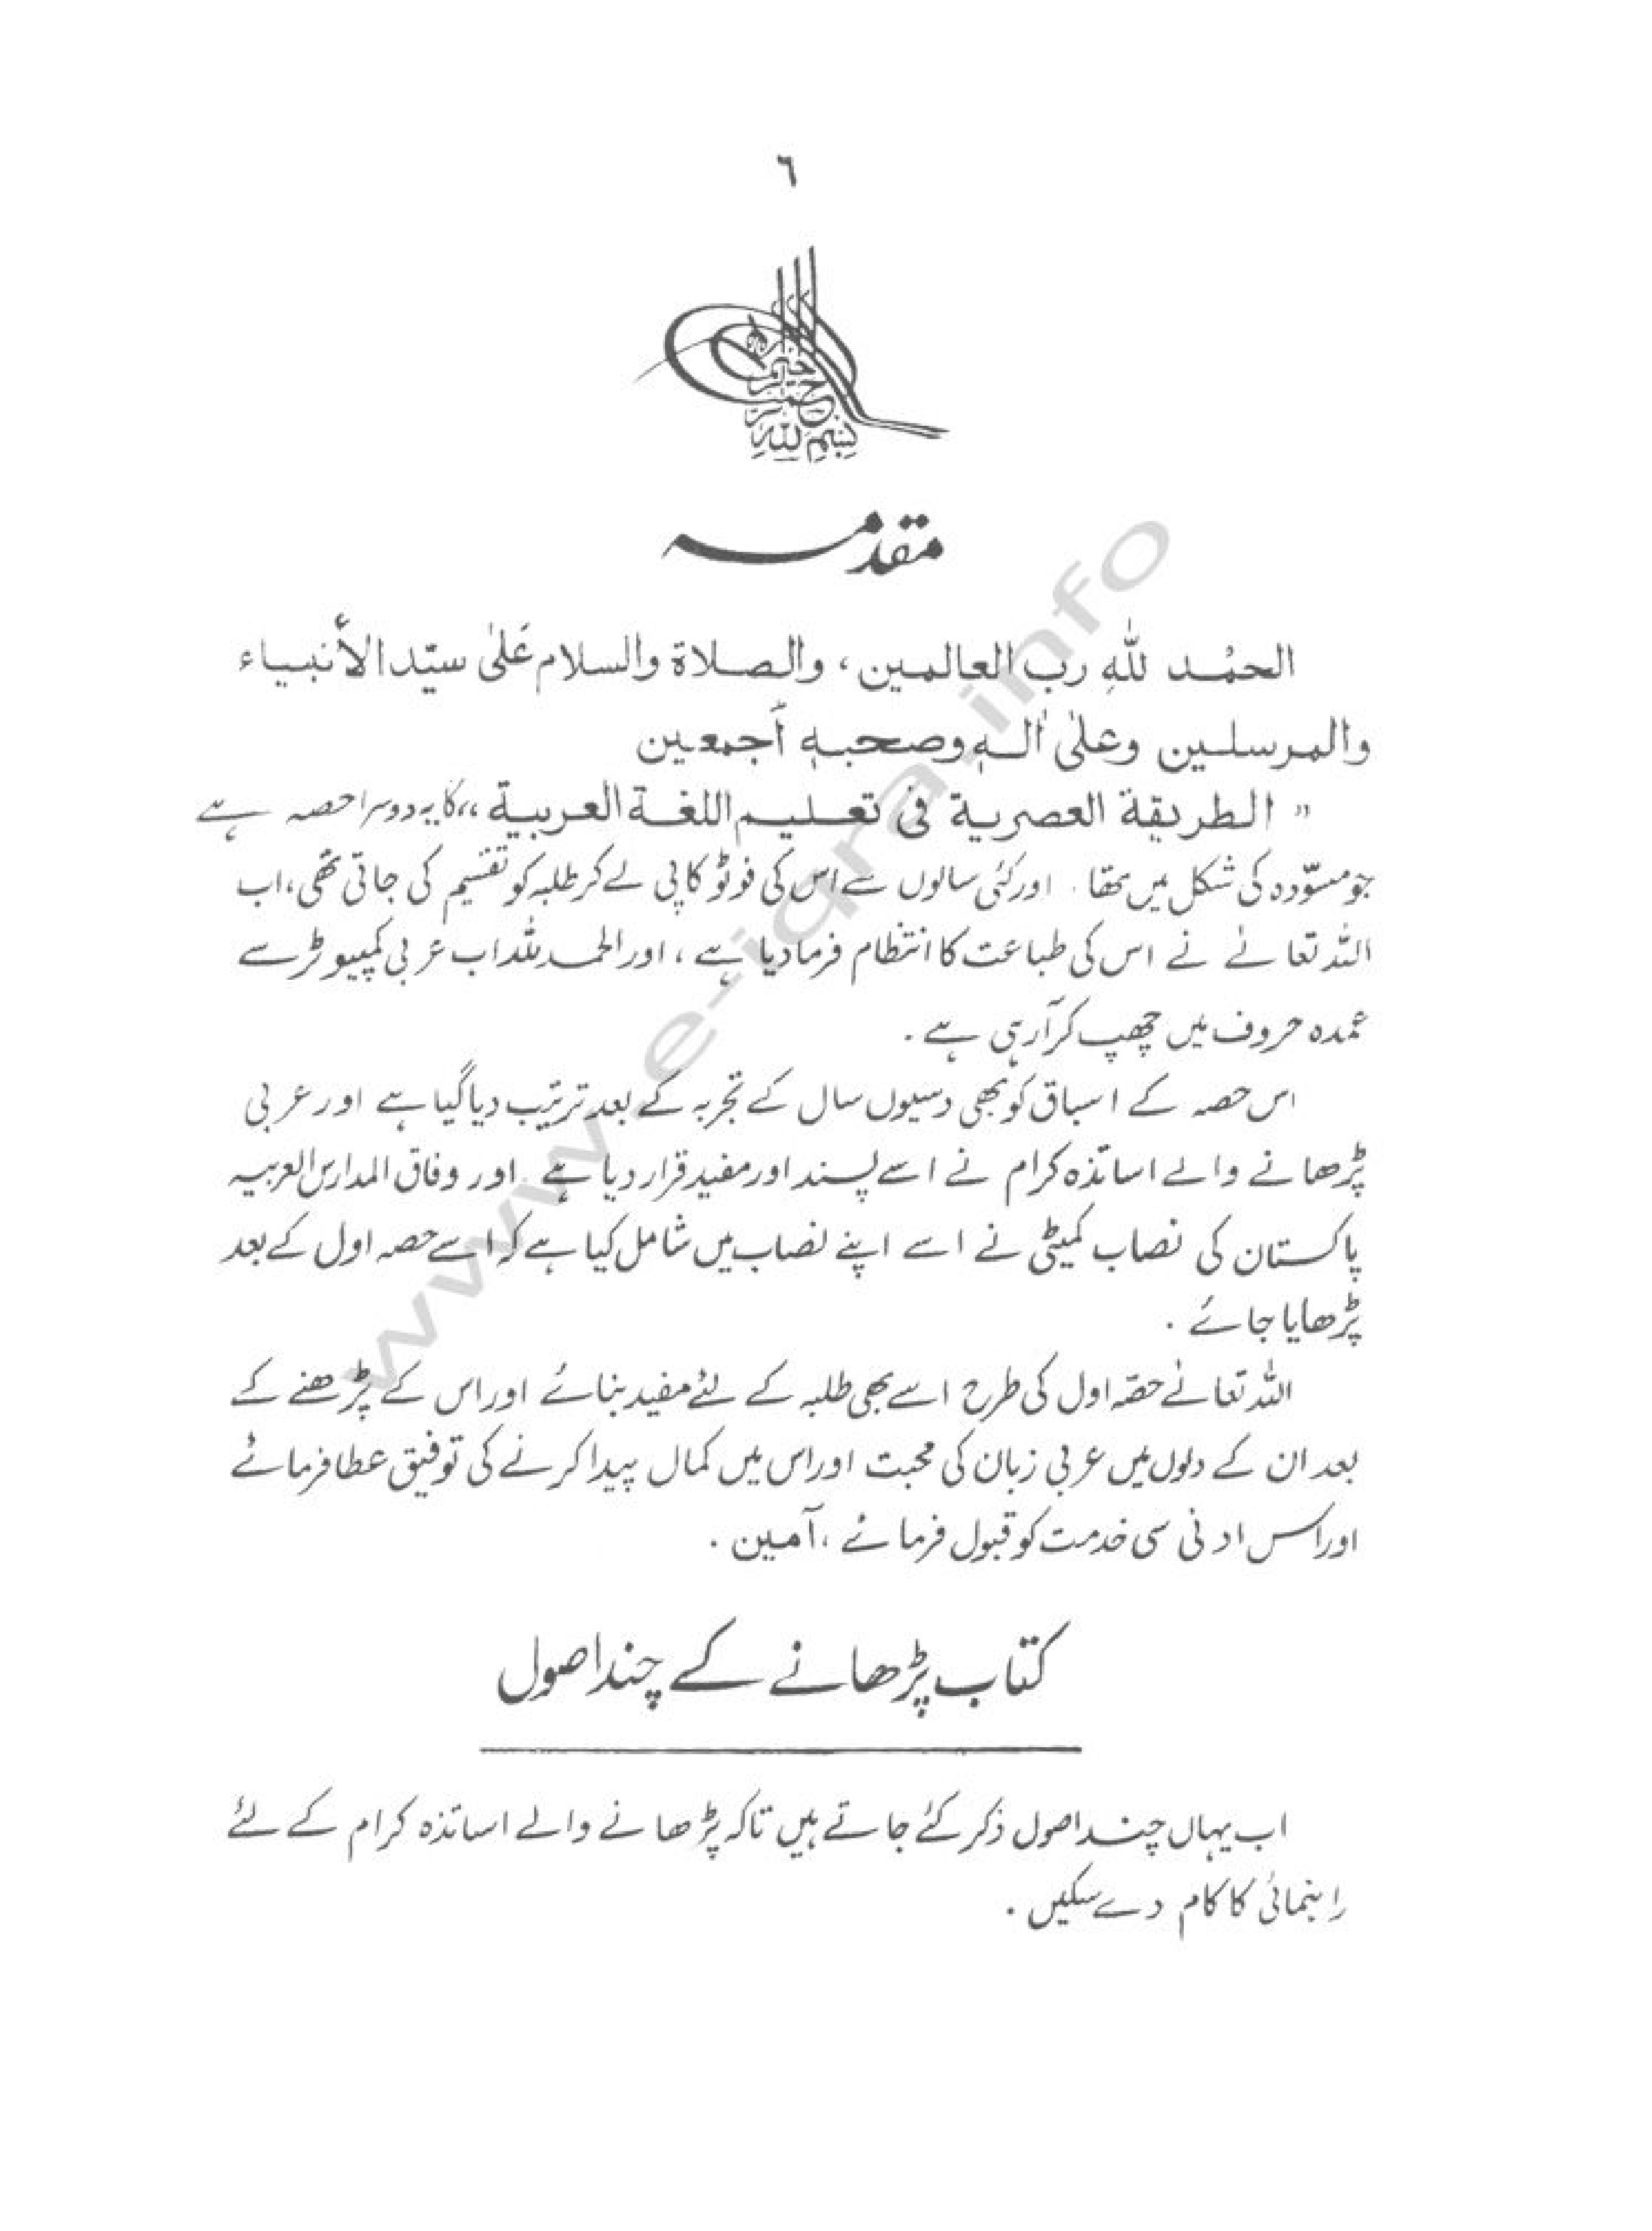 ٦
بسم الله الرحمن الرحيم
مقدمہ
الحمُد للهِ رب العالمين، والصلاة والسلام عَلىٰ سيّد الأنبياء
والمرسلين وعلىٰ اٰلهٖ وصحبهٖ أجمعين
" الطريقة العصرية في تعليم اللغة العربية " کا یہ دوسرا حصہ ہے
جو مسوّدہ کی شکل میں تھا ۔ اور کئی سالوں سے اس کی فوٹو کاپی لے کر طلبہ کو تقسیم کی جاتی تھی، اب
اللہ تعالےٰ نے اس کی طباعت کا انتظام فرما دیا ہے ، اور الحمد للہ اب عربی کمپیوٹر سے
عمدہ حروف میں چھپ کر آرہی ہے ۔
اس حصہ کے اسباق کو بھی دسیوں سال کے تجربہ کے بعد ترتیب دیا گیا ہے اور عربی
پڑھانے والے اساتذہ کرام نے اسے پسند اور مفید قرار دیا ہے ۔ اور وفاق المدارس العربیہ
پاکستان کی نصاب کمیٹی نے اسے اپنے نصاب میں شامل کیا ہے کہ اسے حصہ اول کے بعد
پڑھایا جائے ۔
اللہ تعالےٰ حصّہ اول کی طرح اسے بھی طلبہ کے لئے مفید بنائے اور اس کے پڑھنے کے
بعد ان کے دلوں میں عربی زبان کی محبت اور اس میں کمال پیدا کرنے کی توفیق عطا فرمائے
اور اس ادنی سی خدمت کو قبول فرمائے ، آمین ۔
کتاب پڑھانے کے چند اصول
اب یہاں چند اصول ذکر کئے جاتے ہیں تاکہ پڑھانے والے اساتذہ کرام کے لئے
راہنمائی کا کام دے سکیں ۔
www.e-iqra.info